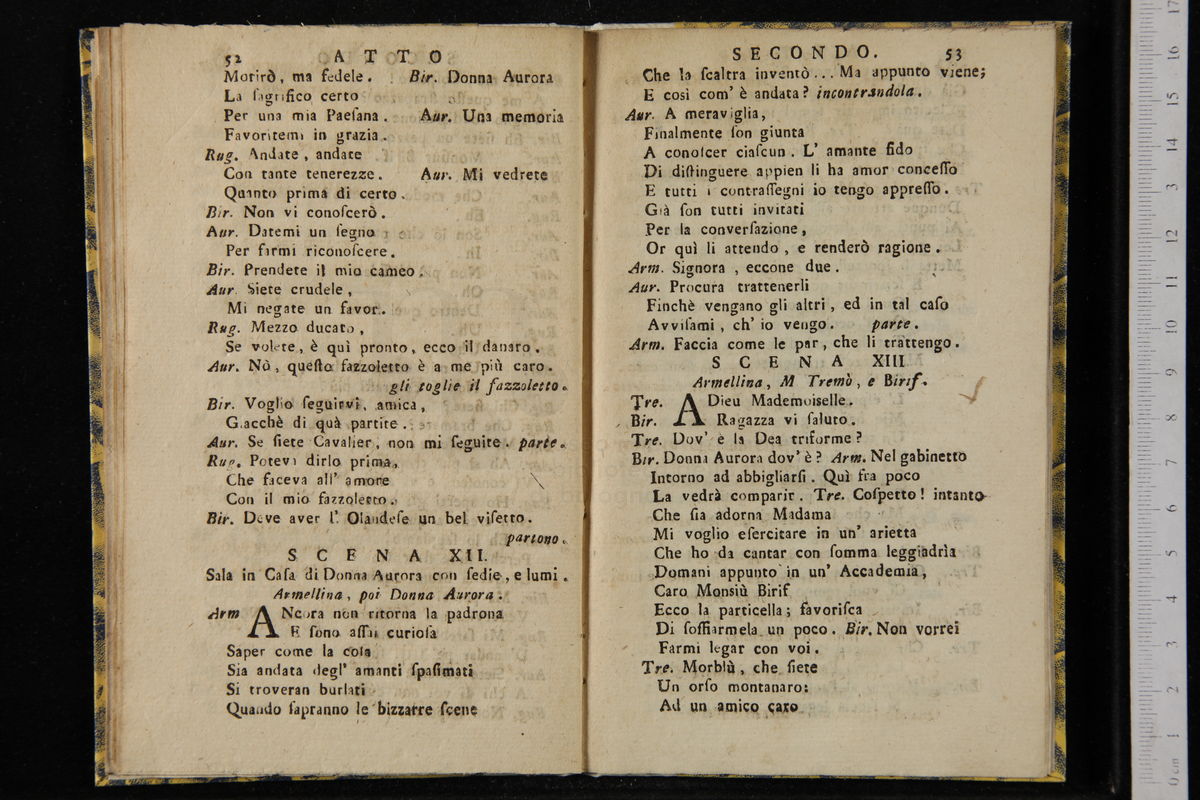 52 ATTO
Morirò, ma fedele. Bir. Donna Aurora
La ſagrifico certo
Per una mia Paeſana. Aur. Una memoria
Favoritemi in grazia.
Rug. Andate, andate
Con tante tenerezze. Aur. Mi vedrete
Quanto prima di certo.
Bir. Non vi conoſcerò.
Aur. Datemi un ſegno
Per farmi riconoſcere.
Bir. Prendete il mio cameo.
Aur. Siete crudele,
Mi negate un favor.
Rug. Mezzo ducato,
Se volete, è quì pronto, ecco il danaro.
Aur. Nò, queſto fazzoletto è a me più caro.
gli toglie il fazzoletto.
Bir. Voglio ſeguirvi, amica,
Giacchè di quà partite.
Aur. Se ſiete Cavalier, non mi ſeguite. parte.
Rug. Potevi dirlo prima,
Che faceva all' amore
Con il mio fazzoletto.
Bir. Deve aver l' Olandeſe un bel viſetto.
partono.
SCENA XII.
Sala in Caſa di Donna Aurora con ſedie, e lumi.
Armellina, poi Donna Aurora.
Arm ANcora non ritorna la padrona
E ſono aſſai curioſa
Saper come la coſa
Sia andata degl' amanti ſpaſimati
Si troveran burlati
Quando ſapranno le bizzarre ſcene
SECONDO. 53
Che la ſcaltra inventò... Ma appunto viene;
E così com' è andata? incontrandola.
Aur. A meraviglia,
Finalmente ſon giunta
A conoſcer ciaſcun. L' amante fido
Di diſtinguere appien li ha amor conceſſo
E tutti i contraſſegni io tengo appreſſo.
Già ſon tutti invitati
Per la converſazione,
Or quì li attendo, e renderò ragione.
Arm. Signora, eccone due.
Aur. Procura trattenerli
Finchè vengano gli altri, ed in tal caſo
Avviſami, ch' io vengo. parte.
Arm. Faccia come le par, che li trattengo.
SCENA XIII
Armellina, M Tremò, e Birif.
Tre. ADieu Mademoiselle.
Bir. Ragazza vi ſaluto.
Tre. Dov' è la Dea triforme?
Bir. Donna Aurora dov' è? Arm. Nel gabinetto
Intorno ad abbigliarſi. Quì fra poco
La vedrà comparir. Tre. Coſpetto! intanto
Che ſia adorna Madama
Mi voglio eſercitare in un' arietta
Che ho da cantar con ſomma leggiadrìa
Domani appunto in un' Accademia,
Caro Monsiù Birif
Ecco la particella; favoriſca
Di ſoffiarmela un poco. Bir. Non vorrei
Farmi legar con voi.
Tre. Morblù, che ſiete
Un orſo montanaro:
Ad un amico caro